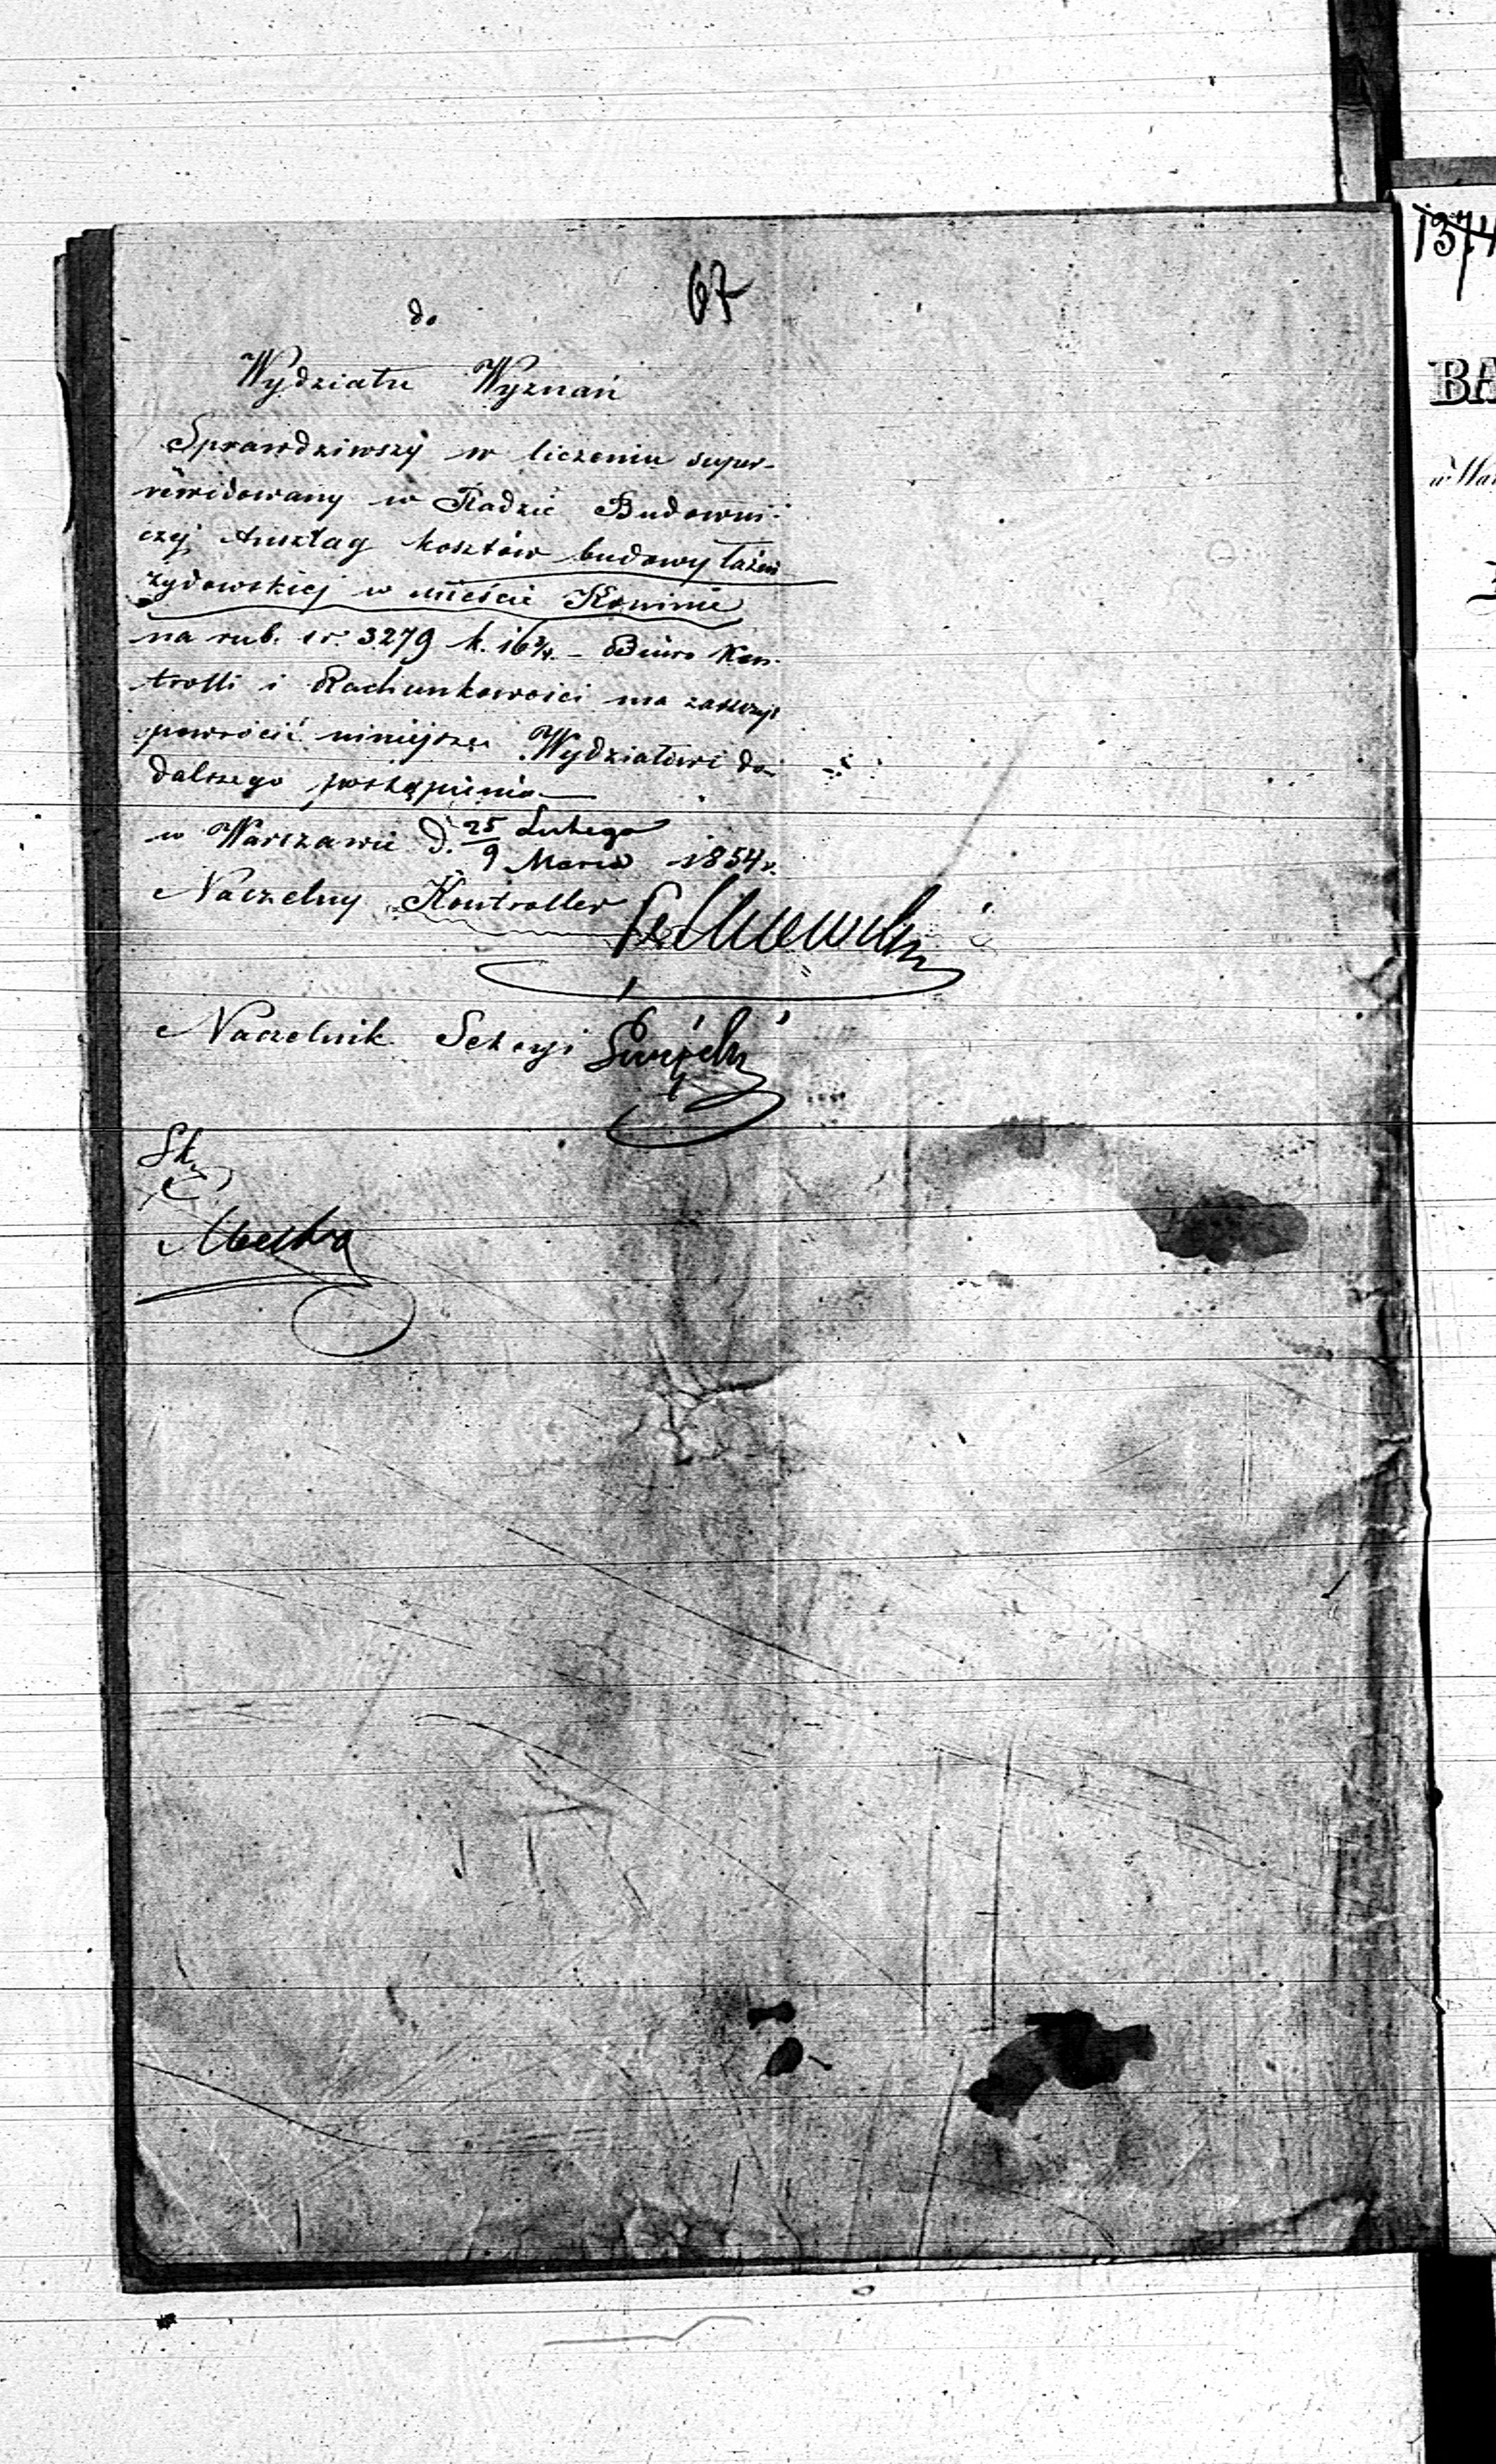 67
do
Wydziału Wyznań
Sprawdziwszy w liczeniu super-
rewidowany w Radzie Budowni-
czej Anszlag kosztów budowy łaźni
żydowskiej w mieście Koninie
na rub. sr. 3279 k. 16¾ – Biuro Kon-
trolli i Rachunkowości ma zaszczyt
powrócić niniejsze Wydziałowi do
dalszego postąpienia
w Warszawie d. 25 Lutego / 9 Marca 1854 r.
Naczelny Kontroller
Naczelnik Sekcyi
1374
BA